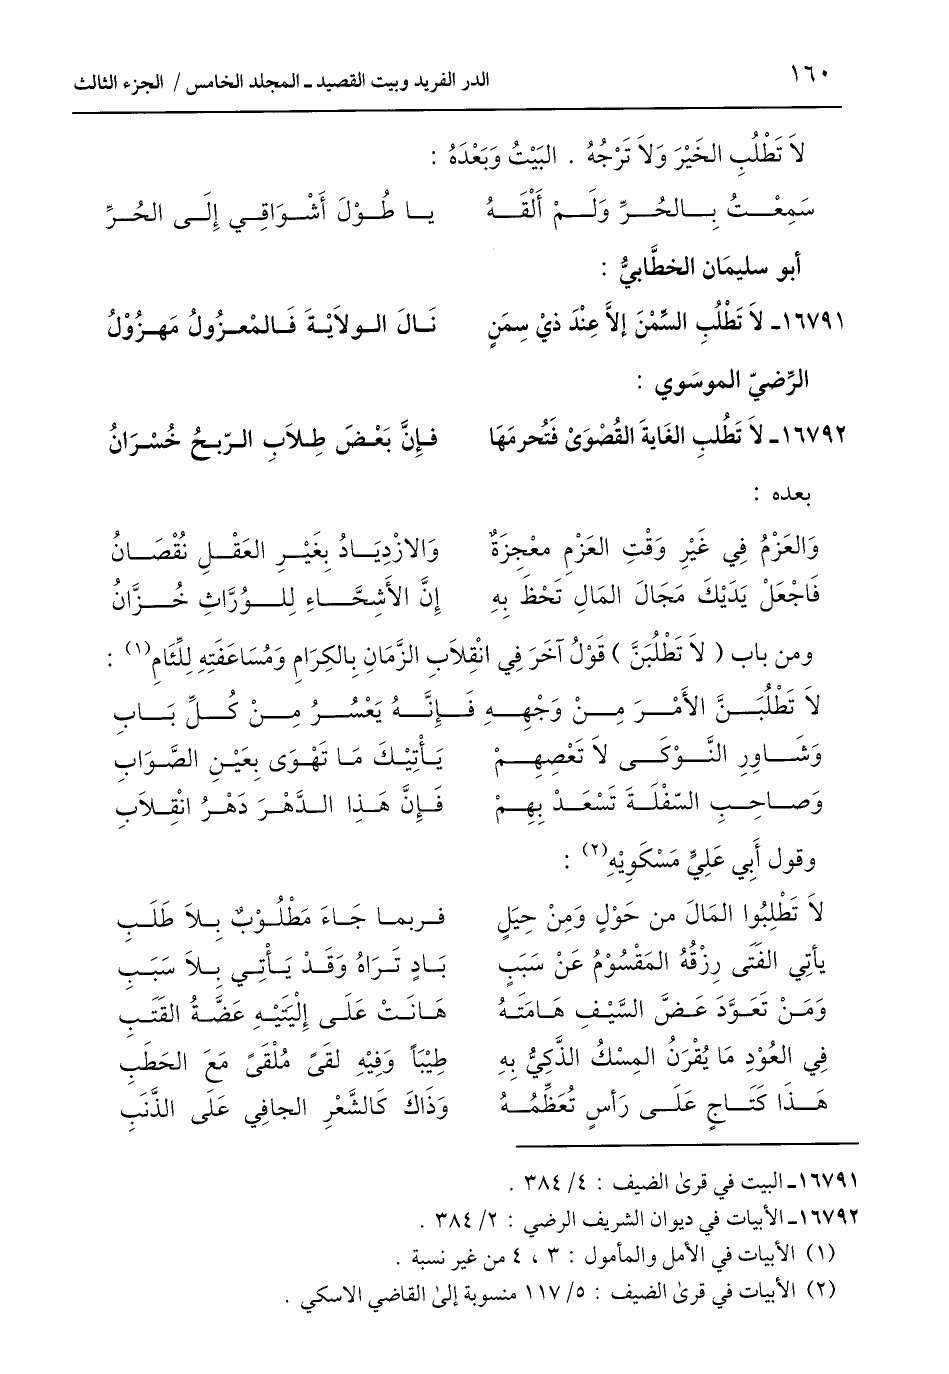 ١٦٠ الدر الفريد وبيت القصيد ـ المجلد الخامس / الجزء الثالث
لاَ تَطْلُبِ الخَيْرَ وَلاَ تَرْجُهُ . البَيْتُ وَبَعْدَهُ :
سَمِعْتُ بِالحُرِّ وَلَمْ أَلْقَهُ يا طُوْلَ أَشْوَاقِي إِلَى الحُرِّ
أبو سليمان الخطَّابيُّ :
١٦٧٩١ـ لاَ تَطْلُبِ السَّمْنَ إلاَّ عِنْدَ ذِيْ سِمَنٍ نَالَ الولاَيَةَ فَالمْعزُولُ مَهزُوْلُ
الرَّضيّ الموسَوي :
١٦٧٩٢ـ لاَ تَطُلبِ الغَايةَ القُصْوَىْ فَتُحرمَهَا فإنَّ بَعْضَ طِلاَبِ الرّبحُ خُسْرَانُ
بعده :
وَالعَزْمُ فِي غَيْرِ وَقْتِ العَزْمِ معْجزَةٌ وَالازْدِيَادُ بِغَيْرِ العَقْلِ نُقْصَانُ
فَاجْعَلْ يَدَيْكَ مَجَالَ المَالِ تَحْظَ بِهِ إِنَّ الأَشحَّاءِ لِلوُرَّاثِ خُزَّانُ
ومن باب ( لاَ تَطْلُبَنَّ ) قَوْلُ آخَرَ فِي انْقِلاَبِ الزَّمَانِ بِالكِرَامِ وَمُسَاعَفَتِهِ لِلِّئَامِ(١) :
لاَ تَطْلُبَنَّ الأَمْرَ مِنْ وَجْهِهِ فَإِنَّهُ يَعْسُرُ مِنْ كُلِّ بَابِ
وَشَاورِ النَّوْكَى لاَ تَعْصِهِمْ يَأْتِيْكَ مَا تَهْوَى بِعَيْنِ الصَّوَابِ
وَصَاحِبِ السّفْلَةَ تَسْعَدْ بِهِمْ فَإِنَّ هَذَا الدَّهْرَ دَهْرُ انْقِلاَبِ
وقول أَبِي عَلِيٍّ مَسْكَوِيْهِ(٢) :
لاَ تَطْلِبُوا المَالَ من حَوْلٍ وَمِنْ حِيَلٍ فربما جَاءَ مَطْلُوْبٌ بِلاَ طَلَبِ
يأتِي الفَتَى رِزْقُهُ المَقْسُوْمُ عَنْ سَبَبٍ بَادٍ تَرَاهُ وَقَدْ يَأْتِي بِلاَ سَبَبِ
وَمَنْ تَعَوَّدَ عَضَّ السَّيْفِ هَامَتَهُ هَانَتْ عَلَى إِلْيَتَيْهِ عَضَّةُ القَتَبِ
فِي العُوْدِ مَا يُقْرَنُ المِسْكُ الذَّكِيُّ بِهِ طِيْبَاً وَفِيْهِ لقَىً مُلْقَىً مَعَ الحَطَبِ
هَذَا كَتَاجٍ عَلَى رَأسٍ تُعَظِّمُهُ وَذَاكَ كَالشَّعْرِ الجافِي عَلَى الذَّنَبِ
١٦٧٩١ـ البيت في قرىٰ الضيف : ٤/ ٣٨٤ .
١٦٧٩٢ـ الأبيات في ديوان الشريف الرضي : ٢/ ٣٨٤ .
(١) الأبيات في الأمل والمأمول : ٣ ، ٤ من غير نسبة .
(٢) الأبيات في قرىٰ الضيف : ٥/ ١١٧ منسوبة إلىٰ القاضي الاسكي .